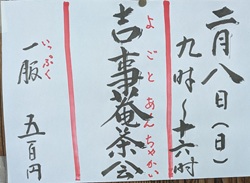 二月八日(日)
九時~十六時
よごとあんちゃかい
吉事菴茶会
いっぷく
一服 五百円